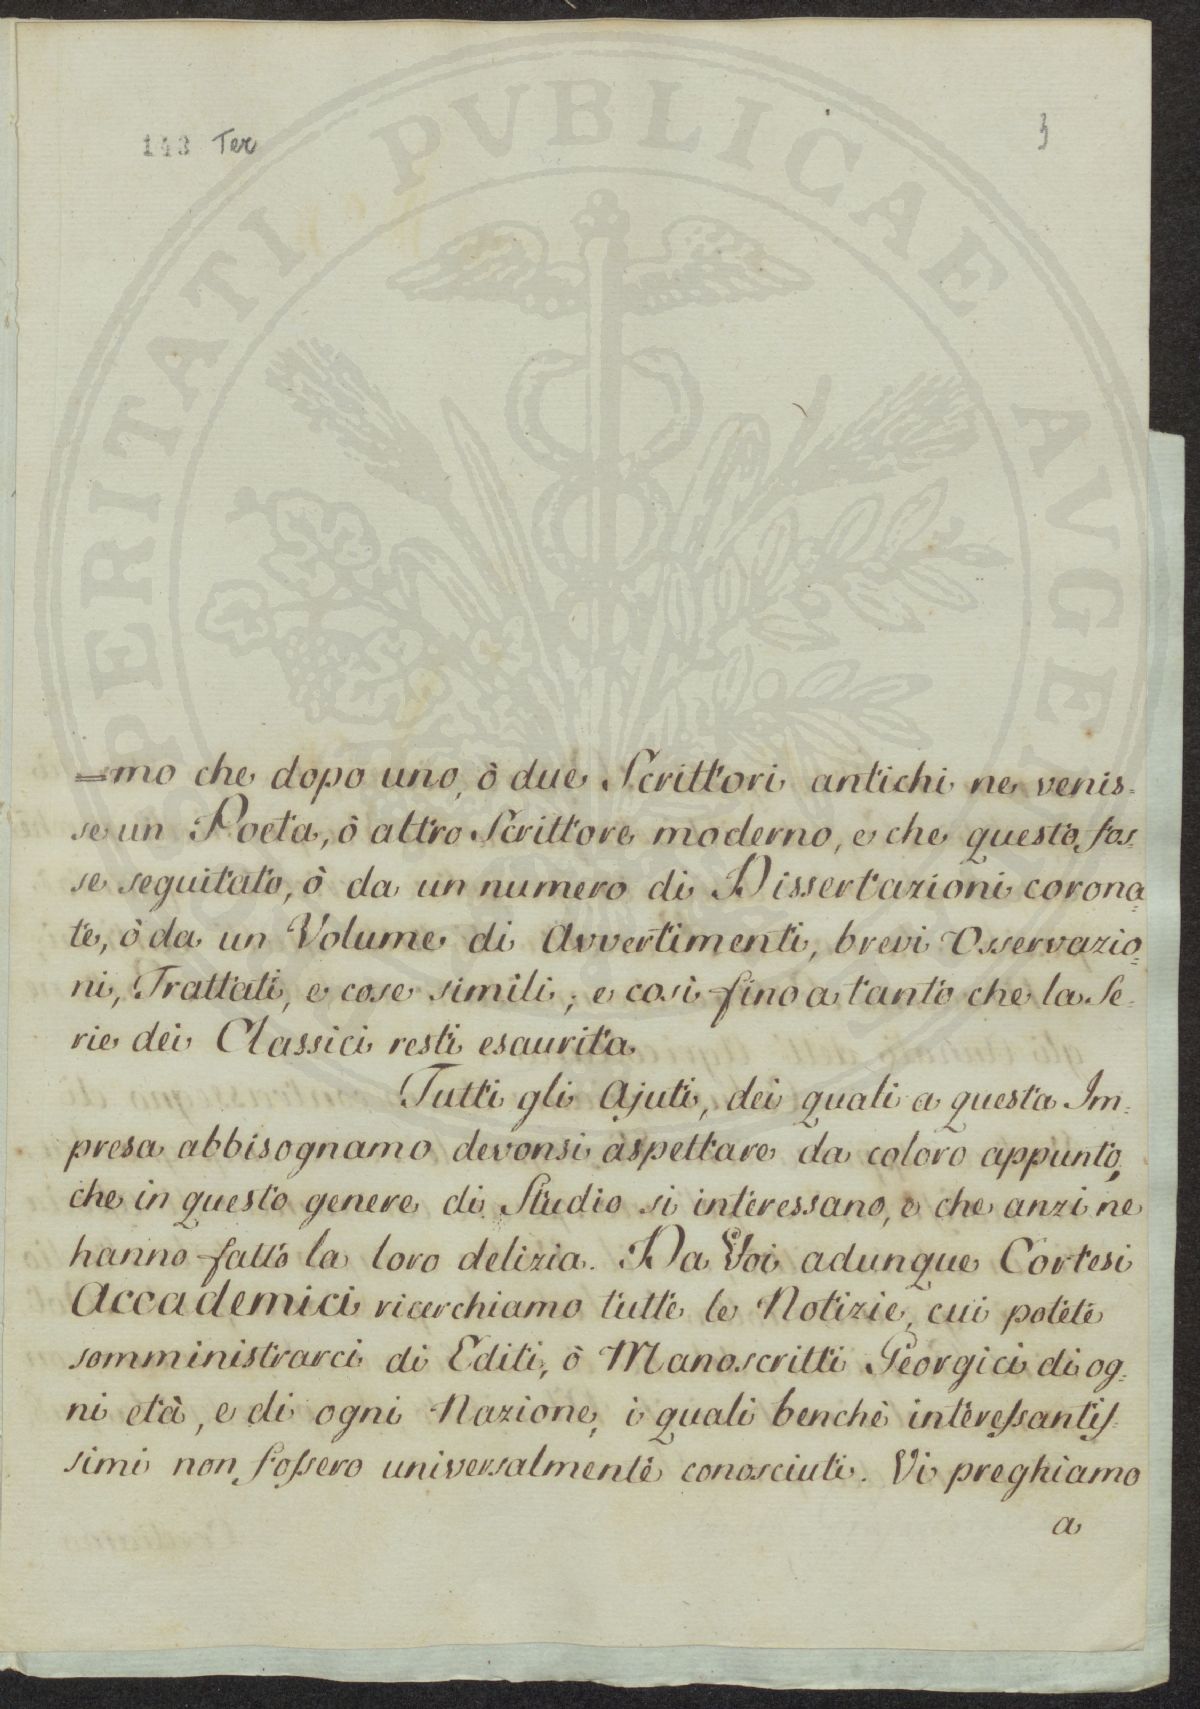 143 Ter
3
PROSPERITATI PUBLICAE AUGENDAE
=mo che dopo uno, ò due Scrittori antichi ne venis-
se un Poeta, ò altro Scrittore moderno, e che questo fos-
se seguitato, ò da un numero di Dissertazioni corona=
te, ò da un Volume di Avvertimenti, brevi Osservazio=
ni, Trattati, e cose simili; e così fino a tanto che la Se-
rie dei Classici resti esaurita
Tutti gli Ajuti, dei quali a questa Im-
presa abbisognamo devonsi aspettare da coloro appunto,
che in questo genere di Studio si interessano, e che anzi ne
hanno fatto la loro delizia. Da Voi adunque Cortesi
Accademici ricerchiamo tutte le Notizie, cui potete
somministrarci di Editi, ò Manoscritti Georgici di og-
ni età, e di ogni Nazione, i quali benchè interessantis-
simi non fossero universalmente conosciuti. Vi preghiamo
a